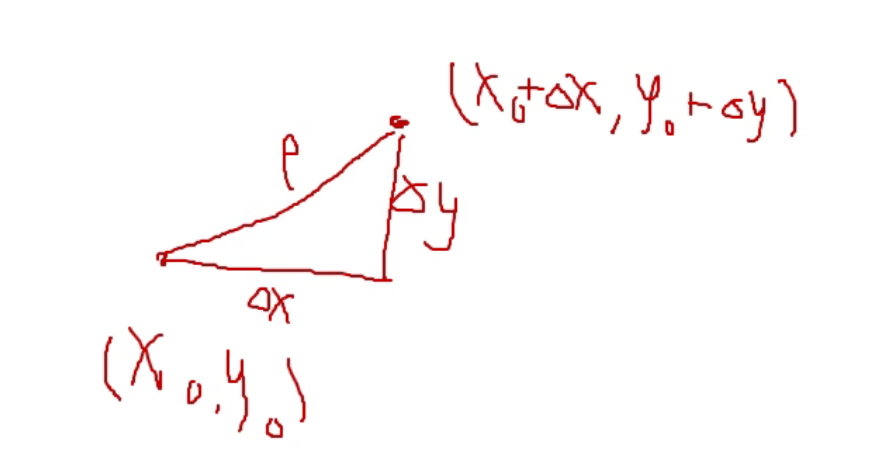 (x₀+Δx, y₀+Δy)
ρ
Δy
Δx
(x₀, y₀)